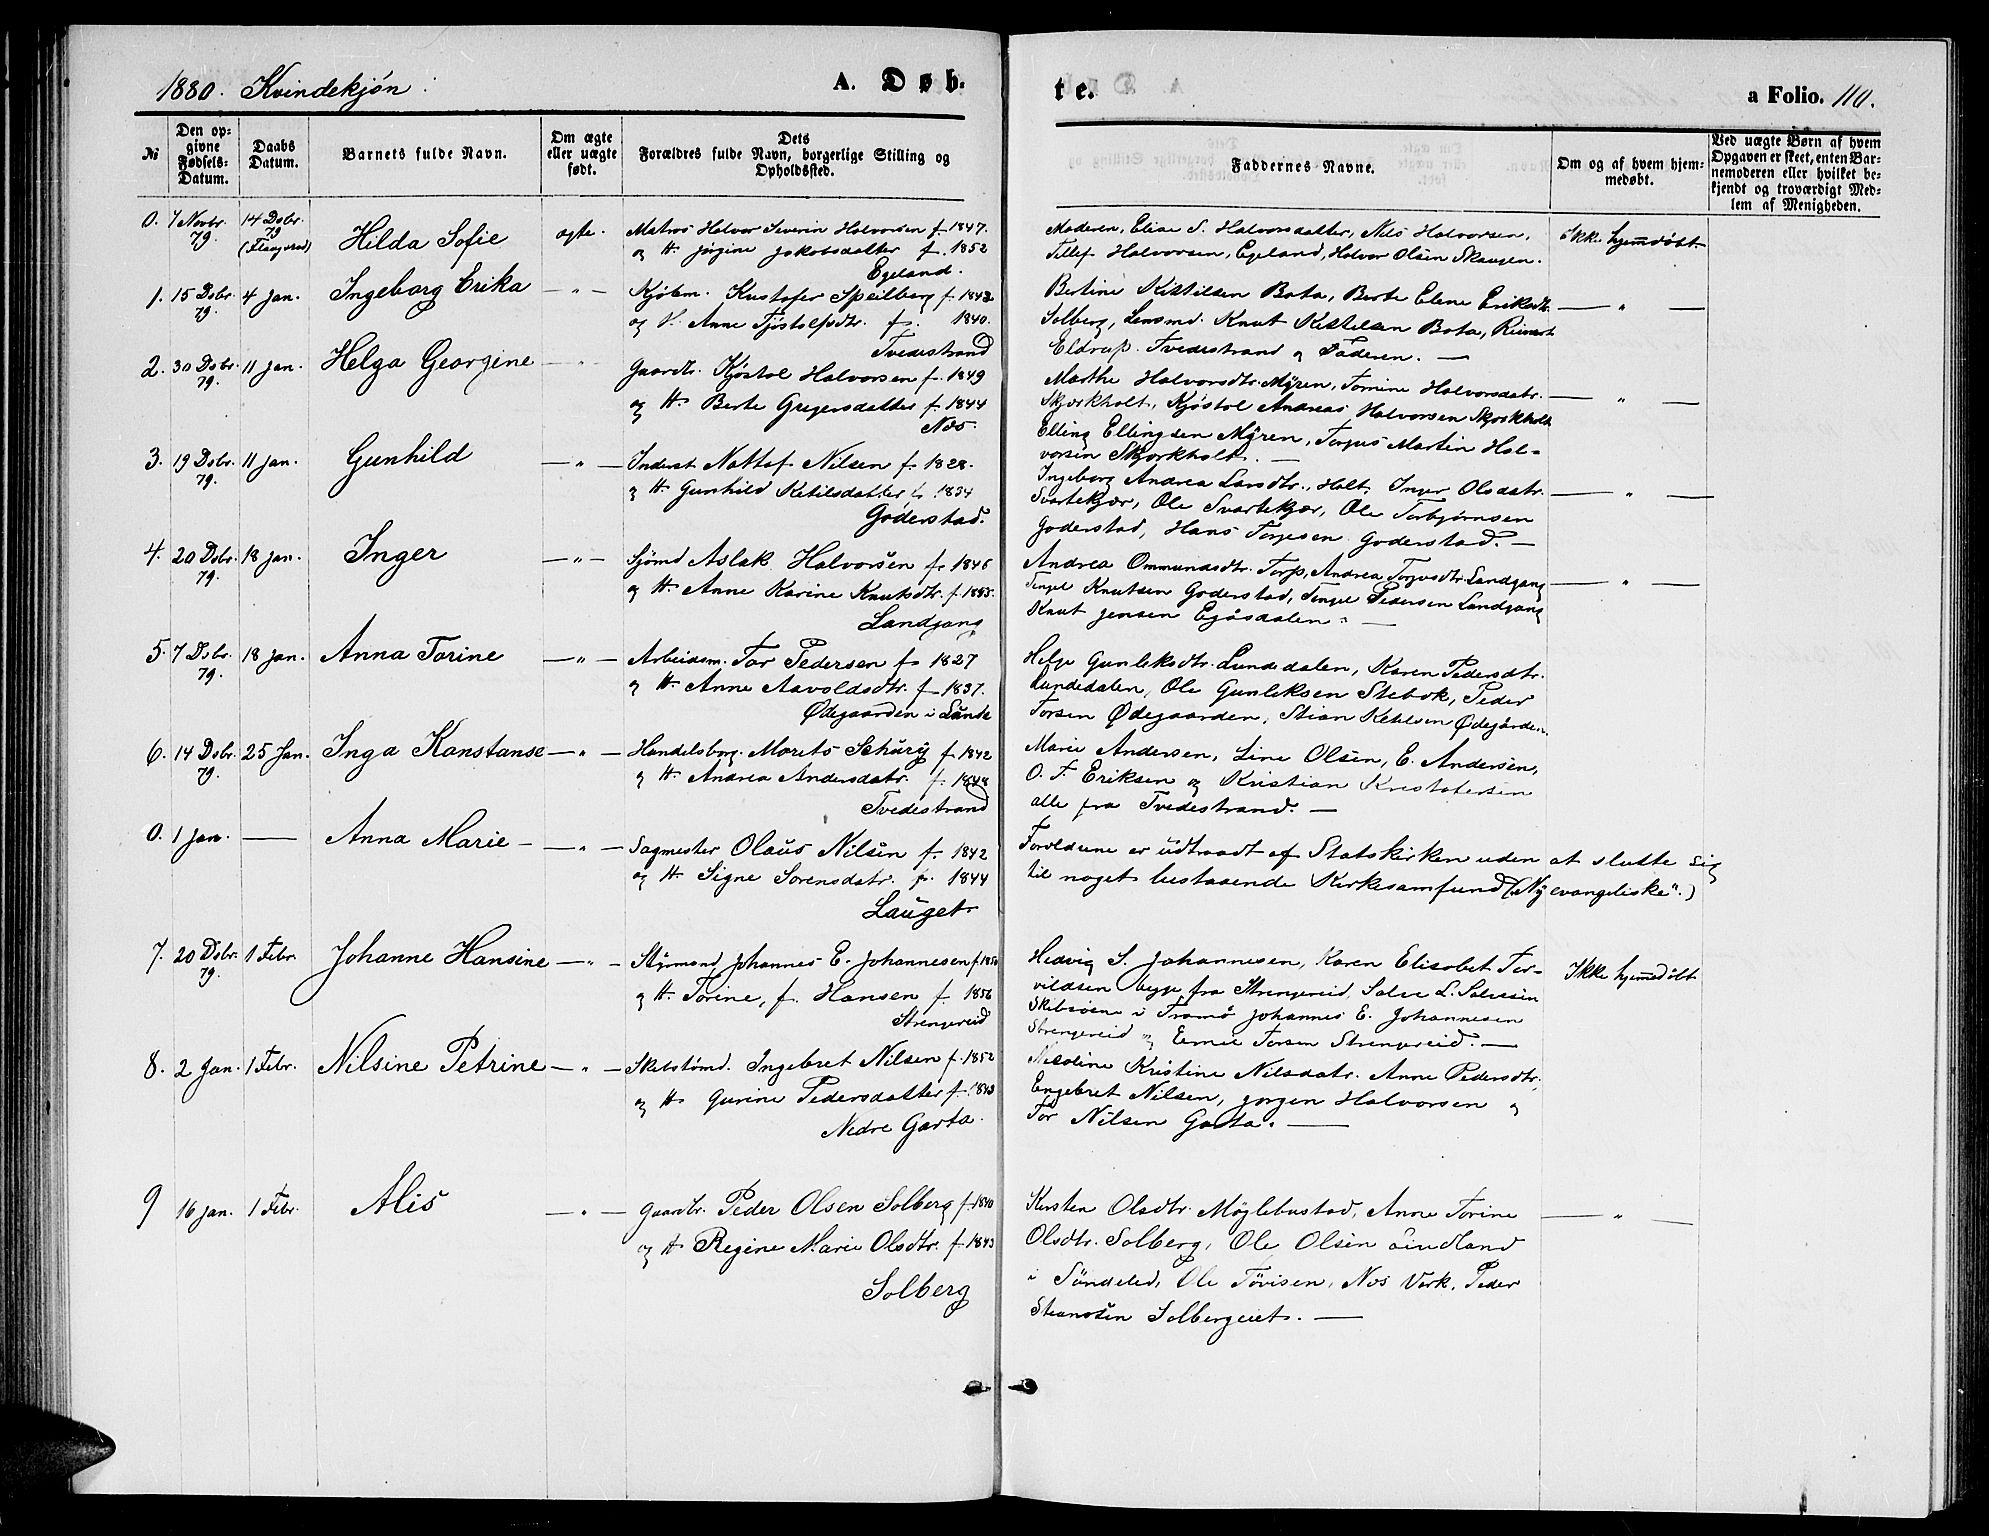 1880. Kvindekjön.
A. Døb-
te.
a Folio. 110.
№
Den op-
givne
Fødsels-
Datum.
Daabs
Datum.
Barnets fulde Navn.
Om ægte
eller uægte
født.
Dets
Forældres fulde Navn, borgerlige Stilling og
Opholdssted.
Faddernes Navne.
Om og af hvem hjem-
medøbt.
Ved uægte Børn af hvem
Opgaven er skeet, enten Bar-
nemoderen eller hvilket be-
kjendt og troværdigt Med-
lem af Menigheden.
0. 7 Novbr. 79. 14 Dsbr. 79 Hilda Sofie ægte.
Matros Halvor Severin Halvorsen f. 1847.
og H. Jørgine Jakobsdatter f. 1852
Egeland.
Moderen, Elise S. Halvorsdatter, Nils Halvorsen,
Tellef Halvorsen, Egeland, Halvor Olsen Skaugen.
Ikke hjemdøbt.
1. 15 Dsbr. 79. 4 Jan. Ingeborg Erika — " —
Kjöbm. Kustofer Speilberg f. 1843
og H. Anne Tjöstolfsdtr. f. 1840.
Tvedestrand
Bertine Kittilsen Bota, Berte Elene Eriksdtr.
Solberg, Lensmd. Knut Kittilsen Bota, Reinert
Eldrup. Tvedestrand og Faderen. —
— " —
2. 30 Dsbr. 79. 11 Jan. Helga Georgine — " —
Gaardbr. Kjöstol Halvorsen f. 1849
og H. Berte Gregersdatter f. 1844
Næs.
Marthe Halvorsdtr. Myren, Tomine Halvorsdatr.
Skjærkholt, Kjöstol Andreas Halvorsen Skjærkholt
Elling Ellingsen Myren, Torjus Martin Hal-
vorsen Skjærkholt. —
— " —
3. 19 Dsbr. 79. 11 Jan. Gunhild — " —
Inderst Nottof Nilsen f. 1828.
og H. Gunhild Ketilsdatter f. 1834
Goderstad.
Ingeborg Andrea Larsdtr., Holt, Inger Olsdatr.
Svartekjær, Ole Svartekjær, Ole Torbjørnsen
Goderstad, Hans Terjesen Goderstad. —
— " —
4. 20 Dsbr. 79. 18 Jan. Inger — " —
Sjömd Aslak Halvorsen f. 1846
og H. Anne Karine Knutsdtr. f. 1855.
Landgang
Andrea Ommundsdtr. Torp, Andrea Torjusdtr. Landgang
Tengel Knutsen Goderstad, Tengel Pedersen Landgang
Knut Jensen Egåsdalen. —
— " —
5. 7 Dsbr. 79. 18 Jan. Anna Torine — " —
Arbeidsm. Tor Pedersen f. 1827
og H. Anne Aavoldsdtr. f. 1837.
Ødegaarden i Lunde
Helje Gunleksdtr. Lundedalen, Karen Pedersdtr.
Lundedalen, Ole Gunleksen Stebok, Peder
Torsen Ødegaarden, Stian Ketilsen Ødegården.
6. 14 Dsbr. 79. 25 Jan. Inga Konstanse — " —
Handelsborg. Morits Schüry f. 1842
og H. Andrea Andersdatr. f. 1848
Tvedestrand
Marie Andersen, Line Olsen, E. Andersen,
O. T. Eriksen og Kristian Kristofersen
alle fra Tvedestrand. —
0. 1 Jan. — Anna Marie — " —
Sagmester Olaus Nilsen f. 1842
og H. Signe Sørensdatr. f. 1844
Lauget.
Forældrene er udtraadt af Statskirken uden at slutte sig
til noget bestaaende Kirkesamfund („Nyevangeliske".)
7. 20 Dsbr. 79. 1 Febr. Johanne Hansine — " —
Styrmand Johannes E. Johannesen f. 1850
og H. Torine, f. Hansen f. 1856
Strengereid
Hedvig S. Johannesen, Karen Elisabet Ter-
vildsen begge fra Strengereid, Salve L. Salvesen
Skibsoene i Tromö Johannes E. Johannesen
Strengereid og Ernie Torsen Strengereid. —
Ikke hjemmedöbt
8. 2 Jan. 1 Febr. Nilsine Petrine — " —
Skibstømd. Ingebret Nilsen f. 1852
og H. Gurine Pedersdatter f. 1843
Nedre Garta.
Nicoline Kristine Nilsdatr. Anne Pedersdtr,
Engebret Nilsen, Jørgen Halvorsen og
Tor Nilsen Garta. —
9 16 Jan. 1 Febr. Alis — " —
Gaardbr. Peder Olsen Solberg f. 1840
og H. Regine Marie Olsdtr. f. 1843
Solberg
Kirsten Olsdtr. Møglebustad, Anne Torine
Olsdtr. Solberg, Ole Olsen Lindland
i Söndeled, Ole Tövisen, Næs Værk, Peder
Steansen Solbergeiet. —
— " —